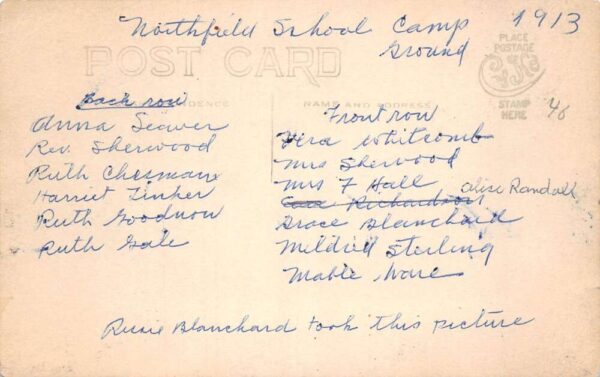 Northfield School Camp 1913
Ground
POST CARD
PLACE
POSTAGE
STAMP
HERE
48
CORRESPONDENCE
NAME AND ADDRESS
Back row
Anna Seaver
Rev. Sherwood
Ruth Chesman
Harriet Tinker
Ruth Goodnow
Ruth Gale
Front row
Vera Whitcomb
Mrs Sherwood
Mrs F Hall
Richardson Alice Randall
Grace Blanchard
Mildred Sterling
Mable Ware
Blanchard took this picture